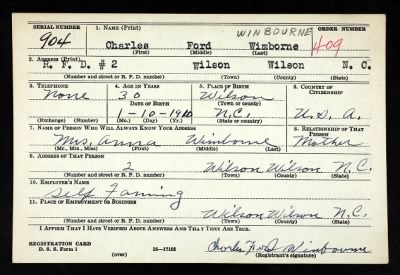 SERIAL NUMBER 1. NAME (Print) WINBOURNE ORDER NUMBER
904 Charles Ford Wimborne 409
(First) (Middle) (Last)
2. ADDRESS (Print)
R. F. D. # 2 Wilson Wilson N. C.
(Number and street or R. F. D. number) (Town) (County) (State)
3. TELEPHONE 4. AGE IN YEARS 5. PLACE OF BIRTH 6. COUNTRY OF CITIZENSHIP
None 30 Wilson
DATE OF BIRTH (Town or county)
1-10-1910 N.C. U.S.A.
(Mo.) (Day) (Yr.) (State or country)
7. NAME OF PERSON WHO WILL ALWAYS KNOW YOUR ADDRESS 8. RELATIONSHIP OF THAT PERSON
Mrs. Anna Winborne Mother
(Mr., Mrs., Miss) (First) (Middle) (Last)
9. ADDRESS OF THAT PERSON
2 Wilson Wilson N.C.
(Number and street or R. F. D. number) (Town) (County) (State)
10. EMPLOYER'S NAME
Self Faming
11. PLACE OF EMPLOYMENT OR BUSINESS
Wilson Wilson N.C.
(Number and street or R. F. D. number) (Town) (County) (State)
I AFFIRM THAT I HAVE VERIFIED ABOVE ANSWERS AND THAT THEY ARE TRUE.
REGISTRATION CARD
D. S. S. Form 1 16-17105 Charles Ford Winborne
(over) (Registrant's signature)